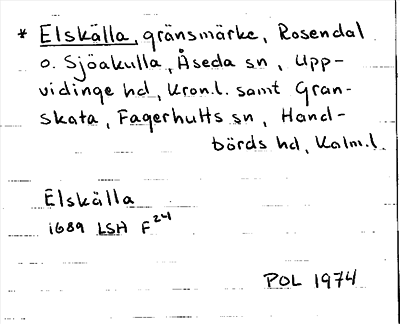 * Elskälla, gränsmärke, Rosendal
o. Sjöakulla, Åseda sn, Upp-
vidinge hd, Kron.l. samt Gran-
skata, Fagerhults sn, Hand-
börds hd, Kalm.l.
Elskälla
1689 LSH F24
POL 1974